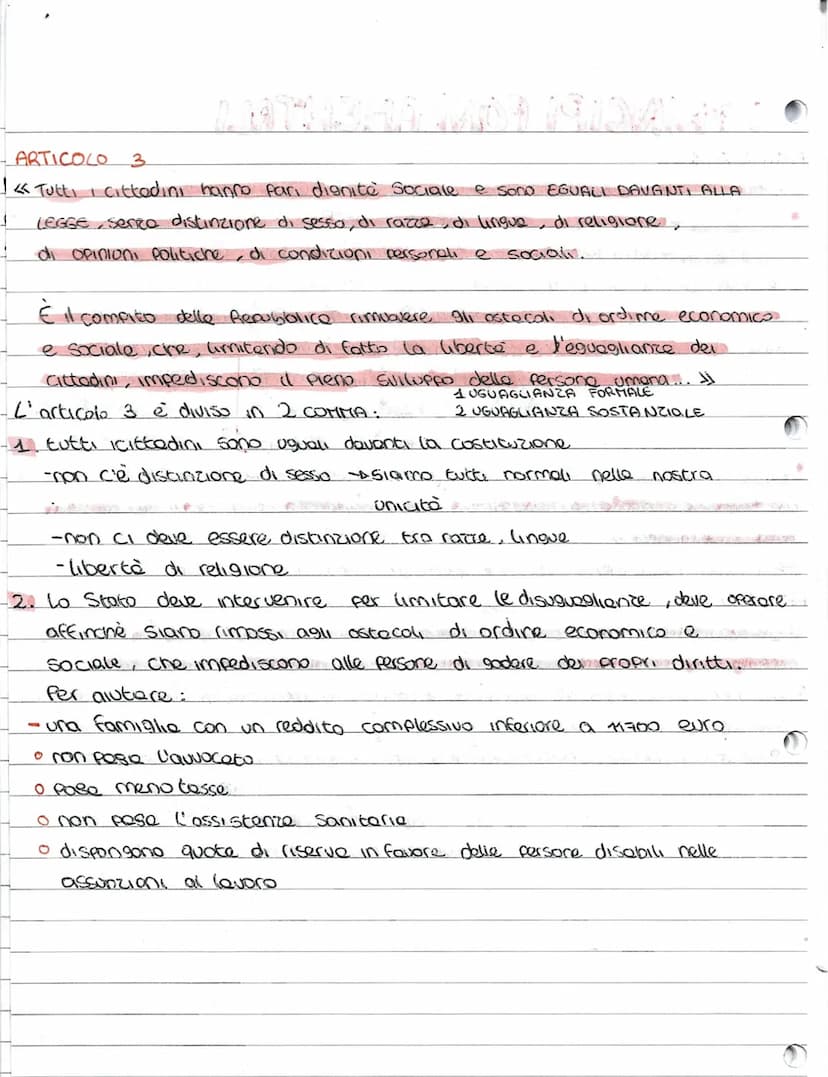 ARTICOLO 3
<< Tutti i cittadini hanno pari dignità sociale e sono EGUALI DAVANTI ALLA
LEGGE, senza distinzione di sesso, di razza, di lingua, di religione,
di opinioni politiche, di condizioni personali e sociali.
È il compito della Repubblica rimuovere gli ostacoli di ordine economico
e sociale, che, limitando di fatto la libertà e l'eguaglianza dei
cittadini, impediscono il pieno sviluppo della persona umana... >>
1 UGUAGLIANZA FORMALE
L'articolo 3 è diviso in 2 COMMA: 2 UGUAGLIANZA SOSTANZIALE
1. tutti i cittadini sono uguali davanti la costituzione
-non c'è distinzione di sesso → siamo tutti normali nella nostra
unicità
-non ci deve essere distinzione tra razze, lingue
-libertà di religione
2. Lo Stato deve intervenire per limitare le disuguaglianze, deve operare
affinchè siano rimossi agli ostacoli di ordine economico e
sociale, che impediscono alle persone di godere dei propri diritti.
Per aiutare:
- una famiglia con un reddito complessivo inferiore a 11700 euro
° non paga l'avvocato
° paga meno tasse
° non paga l'assistenza sanitaria
° dispongono quote di riserva in favore delle persone disabili nelle
assunzioni al lavoro